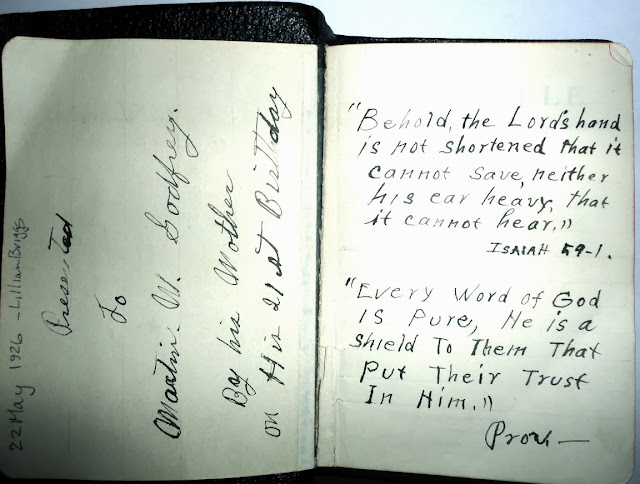 22 May 1926 - Lillian Briggs
Presented
To
Martin. W. Godfrey.
By his Mother
on His 21st Birthday
"Behold, the Lord's hand
is not shortened that it
cannot save, neither
his ear heavy, that
it cannot hear."
ISAIAH 59-1.
"Every Word of God
Is Pure, He is a
Shield To Them That
Put Their Trust
In Him."
Prov. —